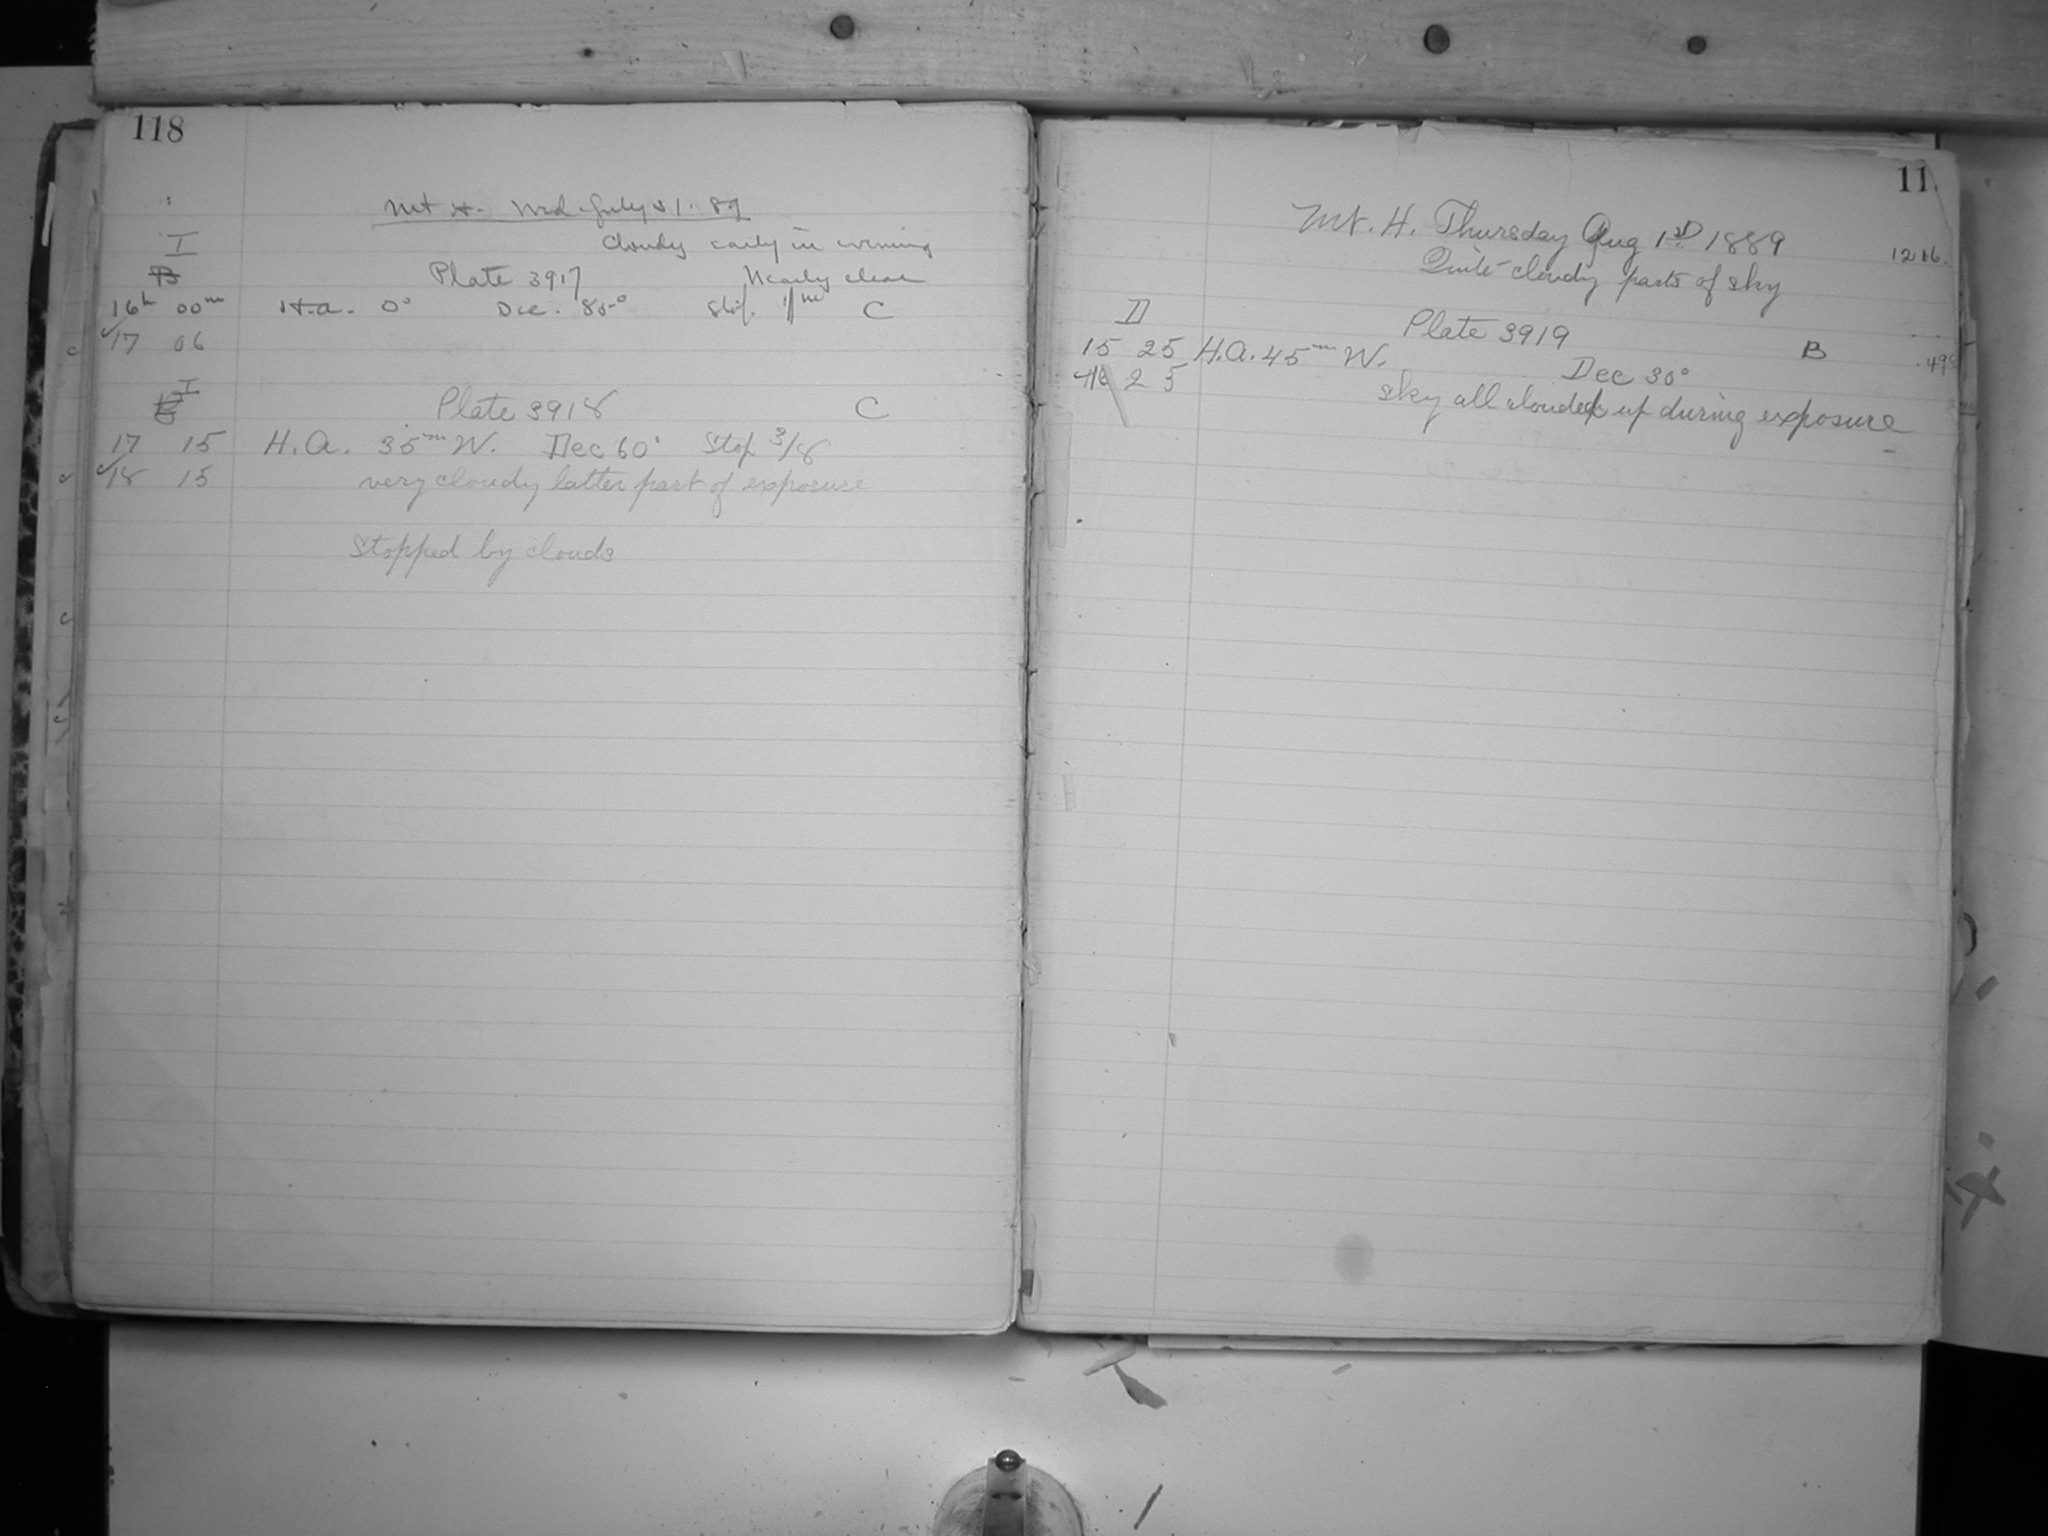 118
Mt H. Wed. July 31. 89
cloudy early in evening
I
B Plate 3917 Nearly clear
16h 00m H.a. 0° Dec. 85° C
17 06
I
Plate 3918 C
17 15 H.A. 35m W. Dec 60° Stop 3/8
18 15 very cloudy latter part of exposure
Stopped by clouds
11
Mt. H. Thursday Aug 1st 1889
1216.
Quite cloudy parts of sky
D Plate 3919
15 25 H.A. 45m W. B
Dec 30°
16 25
sky all clouded up during exposure